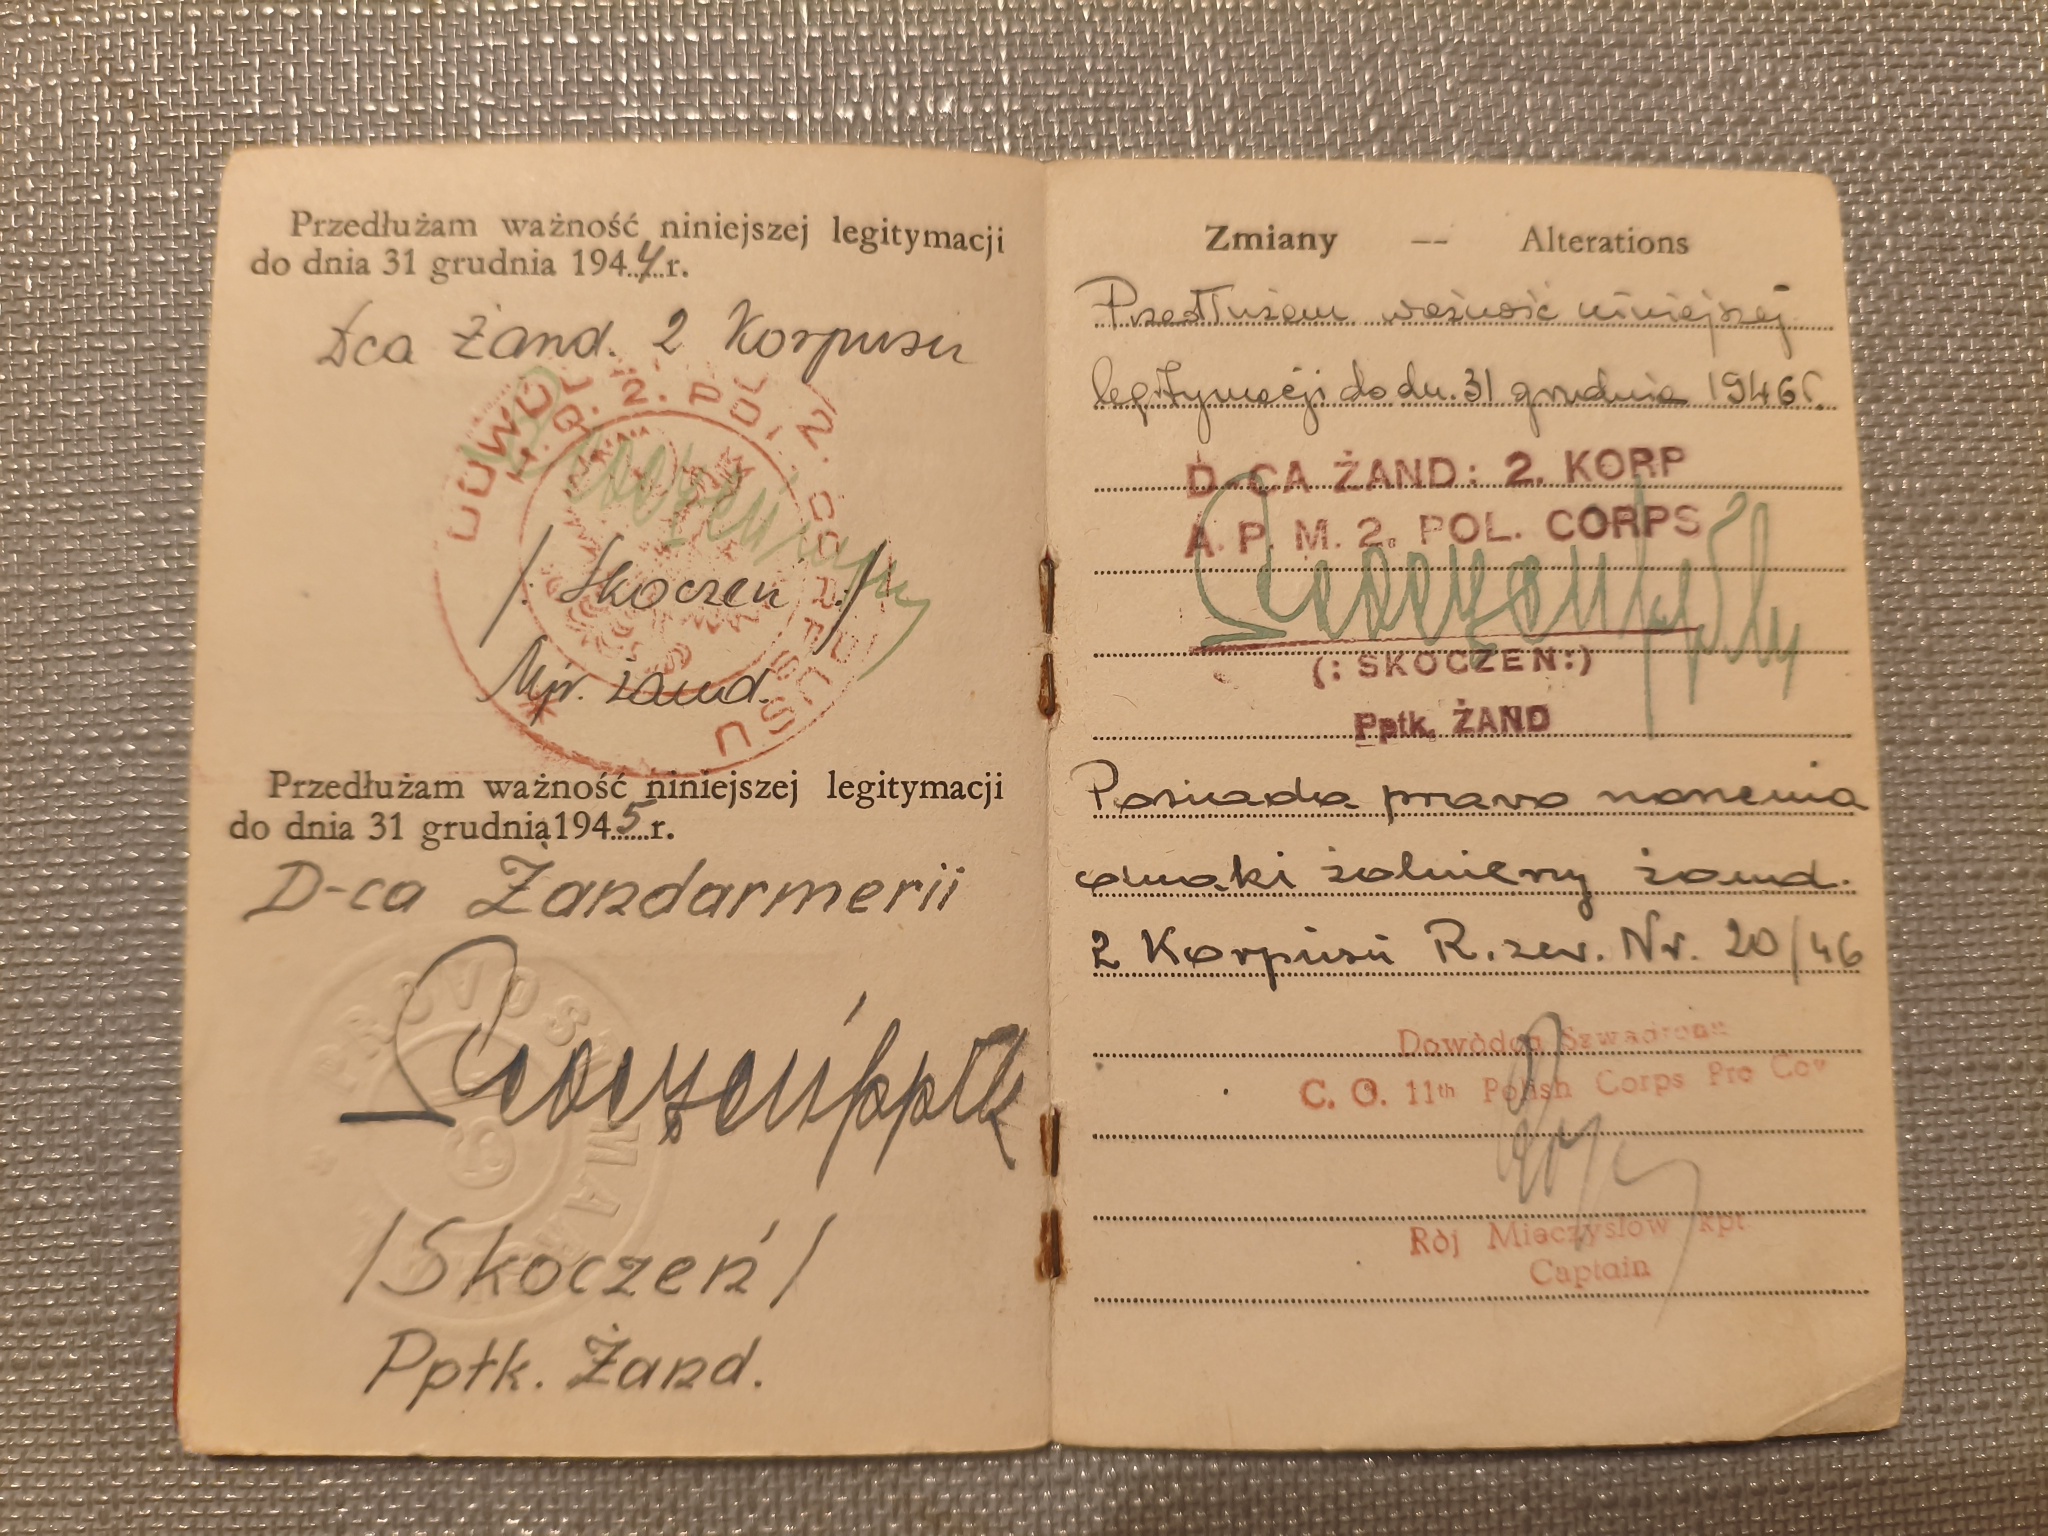 Przedłużam ważność niniejszej legitymacji
do dnia 31 grudnia 1944 r.
Dca Żand. 2 Korpusu
DOWÓD
H.Q. 2. POL.
/: Skoczeń :/
Mjr. żand.
Przedłużam ważność niniejszej legitymacji
do dnia 31 grudnia 1945 r.
D-ca Żandarmerii
PROVOST MAR
Skoczeń ppłk
/Skoczeń/
Ppłk. Żand.
Zmiany — Alterations
Przedłużam ważność niniejszej
legitymacji do dn. 31 grudnia 1946 r.
D-CA ŻAND: 2. KORP
A. P. M. 2. POL. CORPS
(: SKOCZEŃ:)
Ppłk. ŻAND
Posiada prawo noszenia
oznaki żołnierzy żand.
2 Korpusu R. zew. Nr. 20/46
Dowódca Szwadronu
C. O. 11th Polish Corps Pro Coy
Rój Mieczysłow kpt
Captain